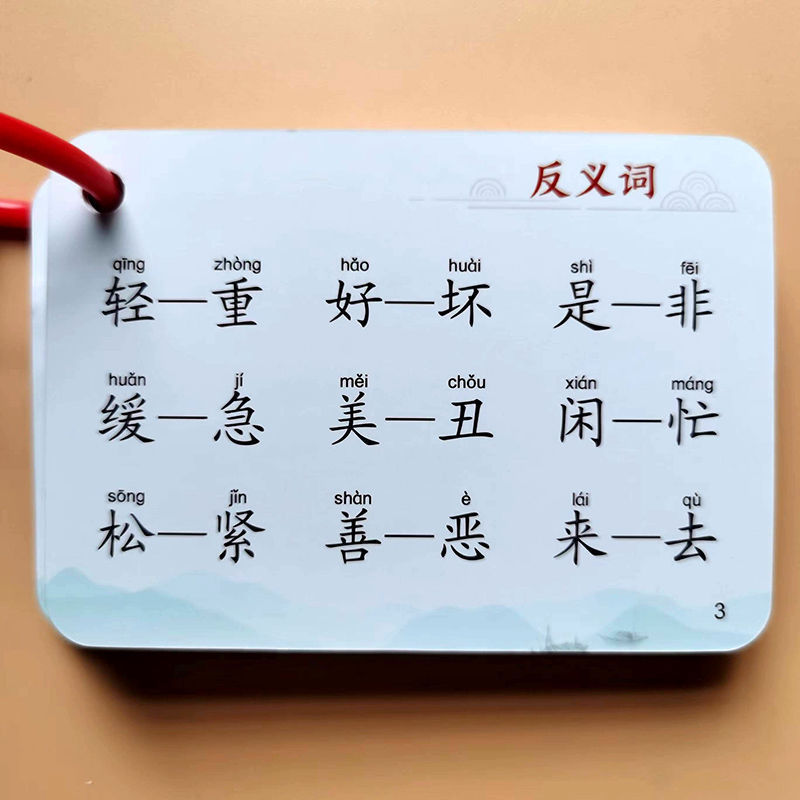 反义词
qīng zhòng hǎo huài shì fēi
轻—重 好—坏 是—非
huǎn jí měi chǒu xián máng
缓—急 美—丑 闲—忙
sōng jǐn shàn è lái qù
松—紧 善—恶 来—去
3